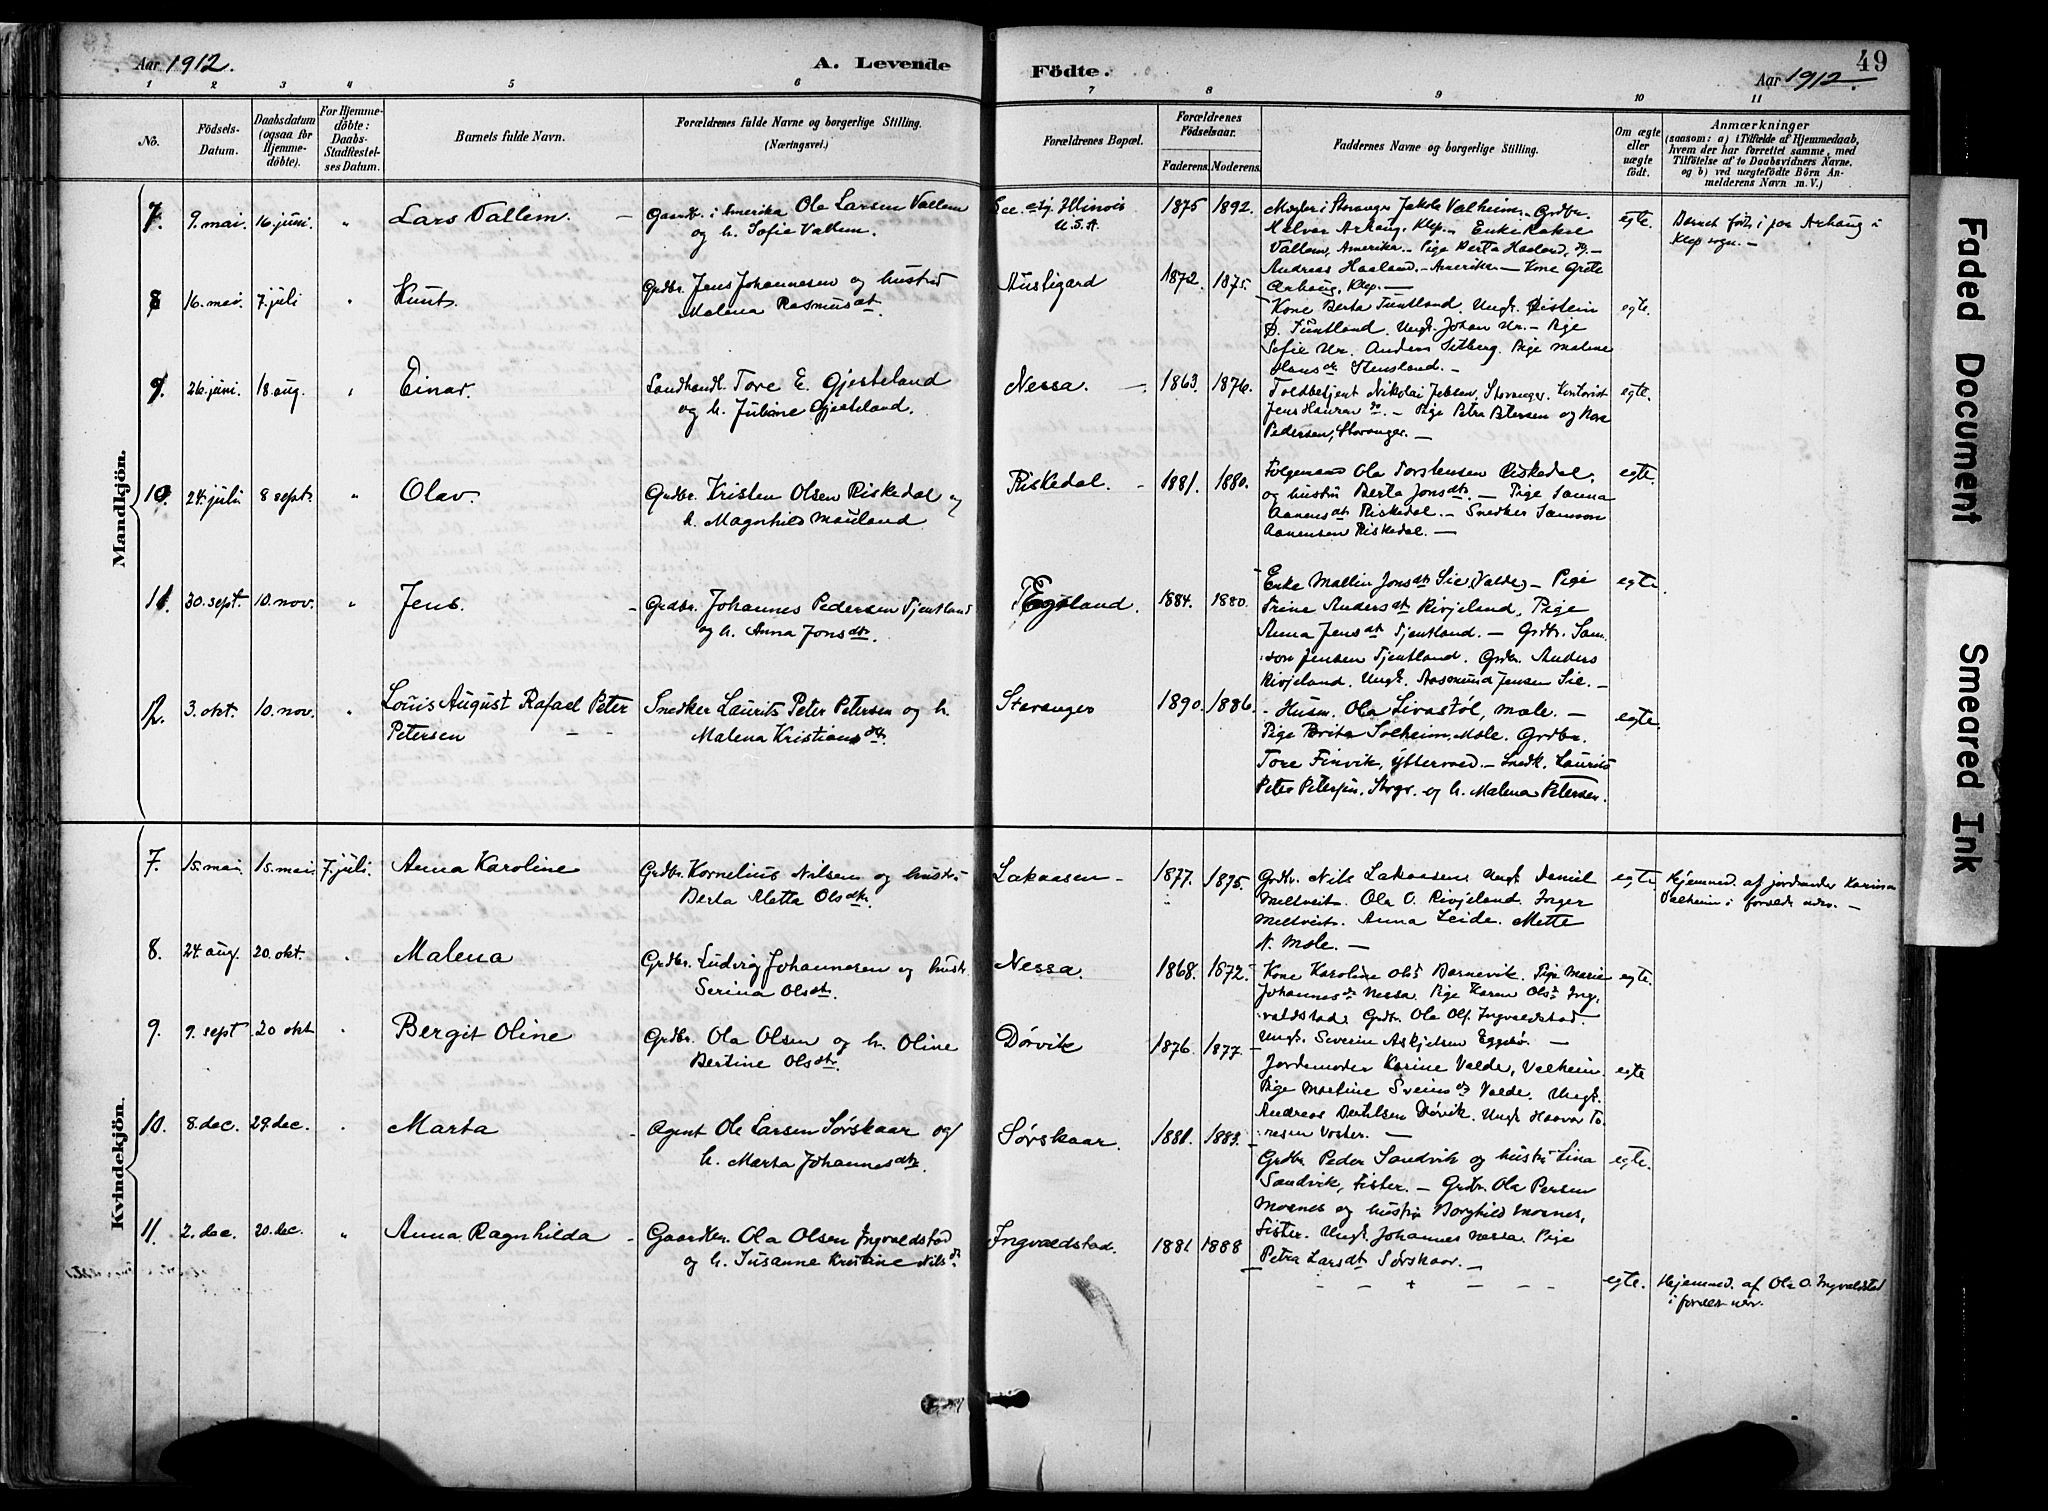 Aar 1912.
A. Levende
Födte.
49
Aar 1912.
1 2 3 4 5 6 7 8 9 10 11
No.
Födsels-
Datum.
Daabsdatum
(ogsaa for
Hjemme-
döbte).
For Hjemme-
döbte:
Daabs-
Stadfæstel-
ses Datum.
Barnets fulde Navn.
Forældrenes fulde Navne og borgerlige Stilling.
(Næringsvei.)
Forældrenes Bopæl.
Forældrenes
Födselsaar.
Faderens. Moderens.
Faddernes Navne og borgerlige Stilling.
Om ægte
eller
uægte
födt.
Anmærkninger
(saasom: a) i Tilfælde af Hjemmedaab,
hvem der har forrettet samme, med
Tilföielse af to Daabsvidners Navne,
og b) ved uægtefödte Börn An-
melderens Navn m. V.)
Mandkjön.
7. 9. mai. 16. juni. " Lars Vallem. Gaardbr. i Amerika Ole Larsen Vallem
og h. Sofie Vallem.
Illinois
U.S.A.
1875 1892.
Mægler i Stavanger Jakob Valheim. Grdbr.
Halvor Arhaug, Klep. Enke Rakel
Vallem, Amerika. Pige Berta Haaland, do
Andreas Haaland. Amerika. Kone Grete
Arhaug, Klep.
egte.
Barnet født i paa Arhaug i
Klep sogn.
8 16. mai. 7. juli " Knut. Grdbr. Jens Johannesen og hustru
Malena Rasmusdt.
Austigard
1872. 1875.
Kone Berta Tuntland. Ungk. Øistein
Ø. Tuntland. Ungk. Johan Ur. Pige
Sofie Ur. Anders Selberg. Pige Malene
Hansdt Stensland.
egte.
9. 26. juni. 18. aug. " Einar. Landhandl. Tore E. Gjesteland
og h. Juliane Gjesteland.
Nessa.
1863. 1876.
Toldbetjent Nikolai Jebsen, Stavanger. Kontorist
Jens Hauran do. Pige Petra Petersen og Nora
Pedersen, Stavanger.
egte.
10. 24. juli 8 sept. " Olav. Grdbr. Kristen Olsen Riskedal og
h. Magnhild Mauland
Riskedal.
1881. 1880.
Følgemand Ola Torstensen Riskedal.
og hustru Berta Jonsdtr. Pige Sanna
Aanensdt Riskedal. Snedker Samson
Aanensen Riskedal.
egte.
11. 30. sept. 10. nov. " Jens. Grdbr. Johannes Pedersen Tjentland
og h. Anna Jonsdtr.
Egeland.
1884. 1880.
Enke Mallin Jonsdt Sie (Valde) Pige
Trine Andersdt Rivjeland, Pige
Anna Jensdt Tjentland. Grdbr. Sam-
son Jensen Tjentland. Grdbr. Anders
Rivjeland. Ungk. Aasmund Jensen Sie.
egte.
12. 3. okt. 10. nov. " Louis August Rafael Peter
Petersen
Snedker Laurits Peter Petersen og h.
Malena Kristiansdt.
Stavanger
1890. 1886.
Husm. Ola Livastøl, Mæle.
Pige Brita Solheim, Mæle. Grdbr.
Tore Finvik, Yttervad. Snedk. Laurits
Peter Petersen. Stvgr. og h. Malena Petersen.
egte.
Kvindekjön.
7. 15. mai. 15. mai. 7. juli. Anna Karoline Grdbr. Kornelius Nilsen og hustr.
Berta Metta Olsdtr.
Lakaasen
1877. 1875.
Grdbr. Nils Lakaasen. Ungk. Daniel
Meltveit. Ola O. Rivjeland. Inger
Meltveit. Anna Leide. Mette
N. Mæle.
egte
Hjemmed. af jordmoder Karina
Valheim i forælds nærv.
8. 24. aug. 20. okt. " Malena Grdbr. Ludvig Johannesen og hustr.
Serina Olsdt.
Nessa
1868. 1872.
Kone Karoline Olsd Barnevik. Pige Marie
Johannesdt Nessa. Pige Karen Olsdt Ing-
valdstad. Grdbr. Ola Ols. Ingvaldstad.
Ungk. Severin Askjelsen Eggebø.
egte.
9. 9. sept 20 okt " Bergit Oline Grdbr. Ola Olsen og h. Oline
Bertine Olsdtr.
Dørvik
1876. 1877.
Jordemoder Karine Valde, Valheim
Pige Martine Sveinsdt Valde. Ungk.
Andreas Bertilsen Dørvik. Ungk. Haavar To-
resen Voster.
egte
10. 8. dec. 29. dec. " Marta Agent Ole Larsen Sørskaar og
h. Marta Johannesdtr.
Sørskaar.
1881. 1883.
Grdbr. Peder Sandvik og hustr. Lina
Sandvik, Fister. Grdbr. Ola Persen
Mosnes og hustru Borghild Mosnes,
Fister. Ungk. Johannes Nessa. Pige
Petra Larsdt Sørskaar.
egte.
11. 2. dec. 20. dec. " Anna Ragnhilda Gaardbr. Ola Olsen Ingvaldstad
og h. Susanne Kristine Nilsdt.
Ingvaldstad.
1881 1888
egte.
Hjemmed. af Ola O. Ingvaldstad
i foræld. nærv.
Faded Document
Smeared Ink